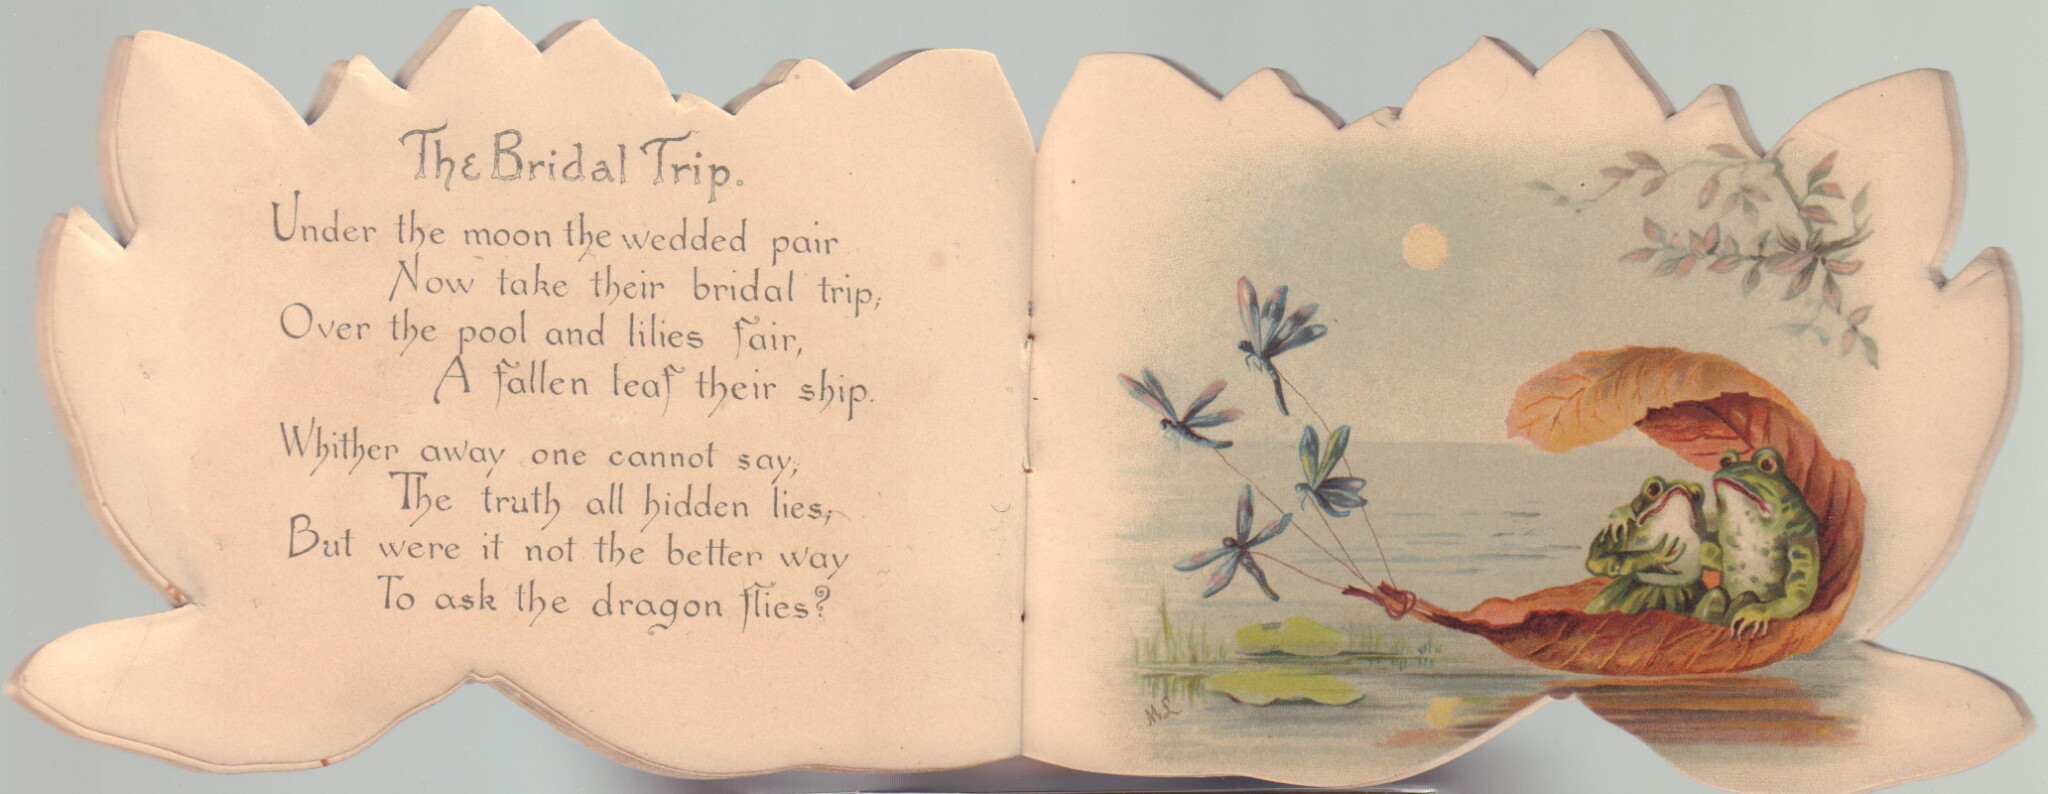 The Bridal Trip.
Under the moon the wedded pair
Now take their bridal trip;
Over the pool and lilies fair,
A fallen leaf their ship.
Whither away one cannot say;
The truth all hidden lies;
But were it not the better way
To ask the dragon flies?
ML